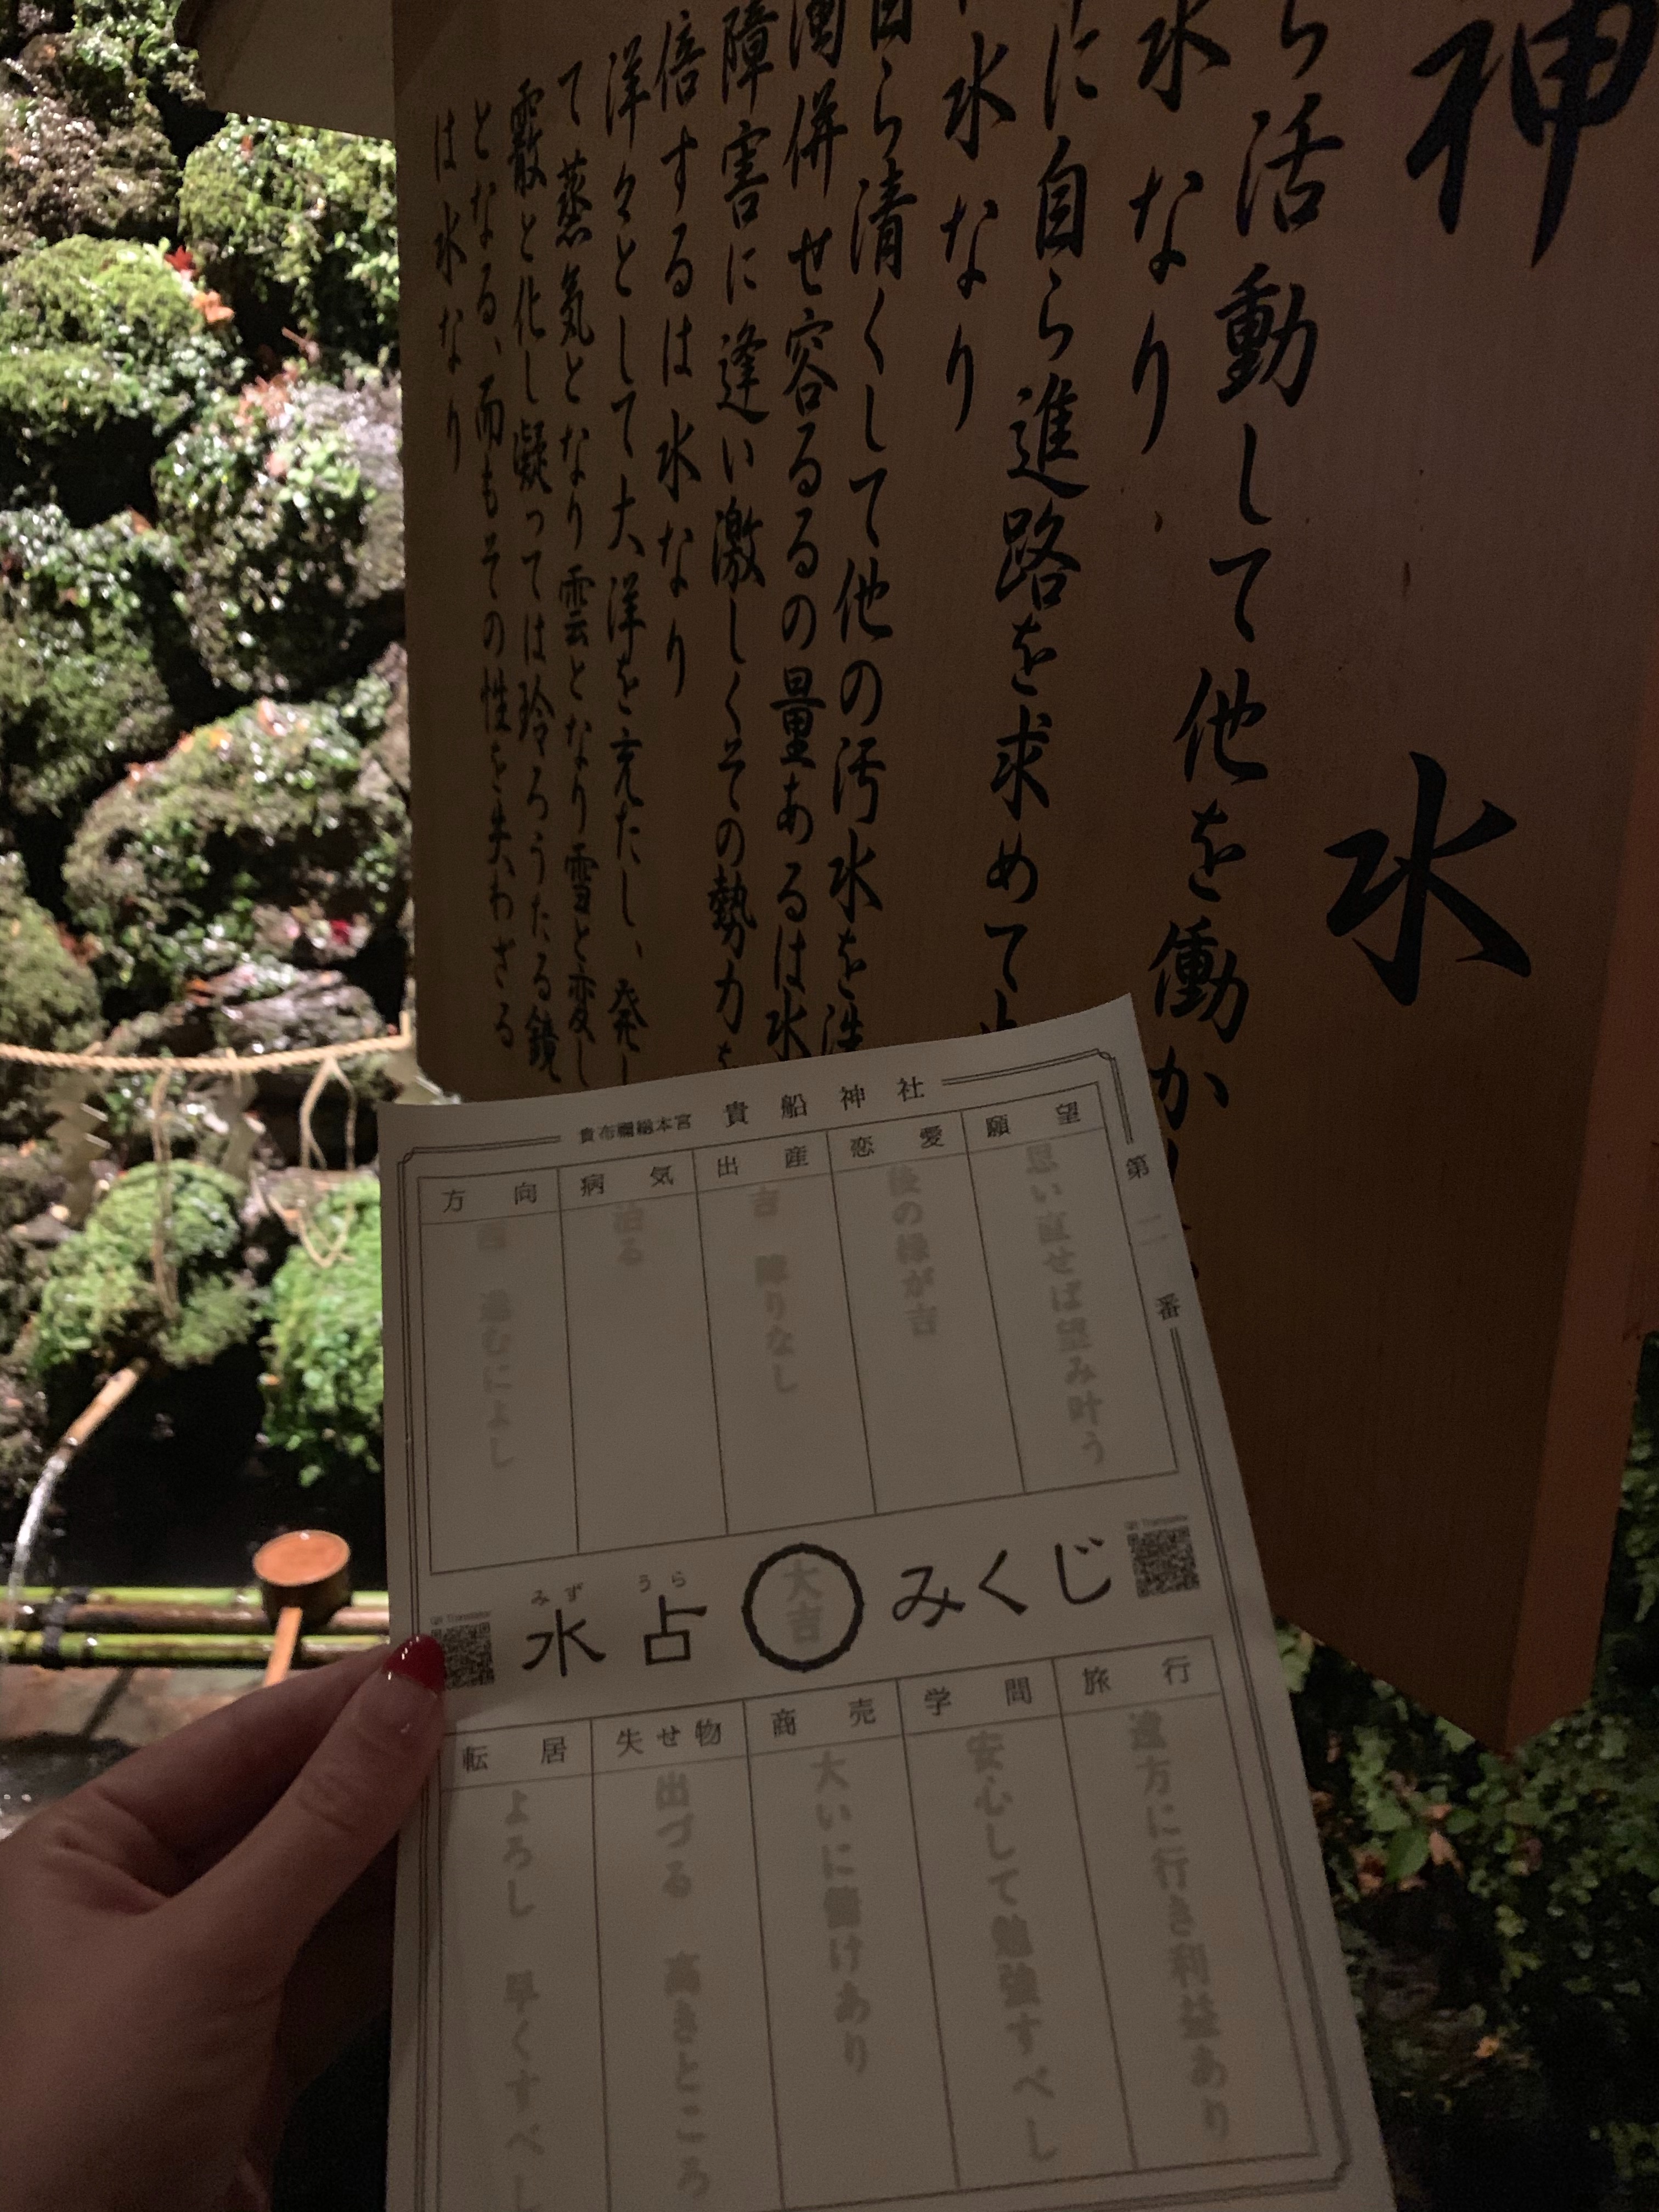 神水
ら活動して他を働かし
水なり
に自ら進路を求めて
水なり
自ら清くして他の汚水を洗
濁併せ容るるの量あるは水
障害に逢い激しくその勢力を
倍するは水なり
洋々として大洋を充たし、発し
て蒸気となり雲となり雪と変し
霰と化し凝っては玲ろうたる鏡
となる、而もその性を失わざる
は水なり
貴布禰総本宮 貴船神社
第二番
願望
思い直せば望み叶う
恋愛
後の縁が吉
出産
吉 障りなし
病気
治る
方向
西 進むによし
みずうら
水占 大吉 みくじ
旅行
遠方に行き利益あり
学問
安心して勉強すべし
商売
大いに儲けあり
失せ物
出づる 高きところ
転居
よろし 早くすべし